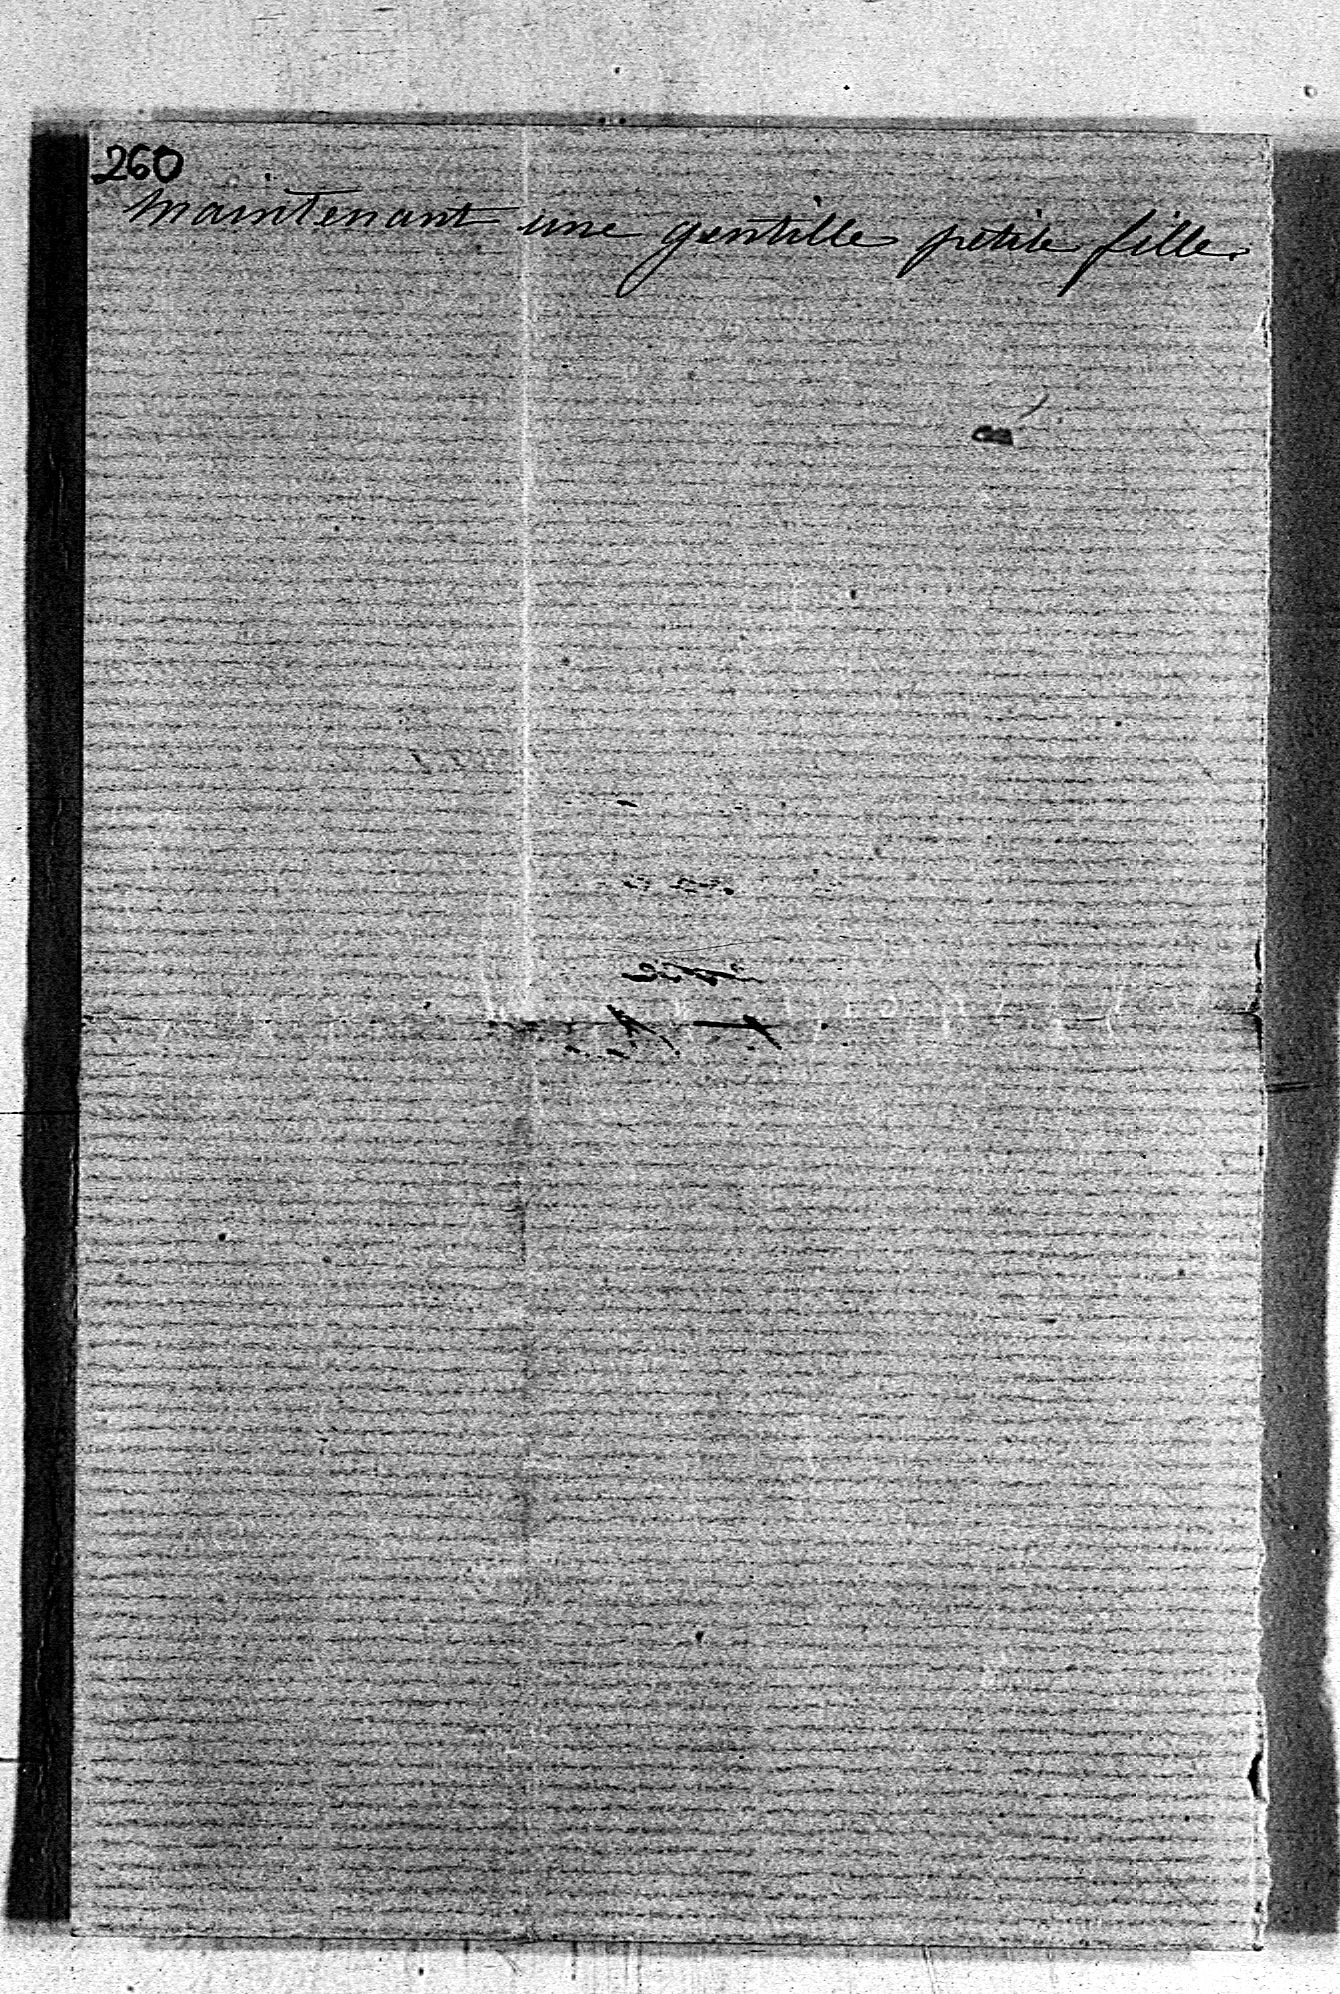 260
maintenant une gentille petite fille.